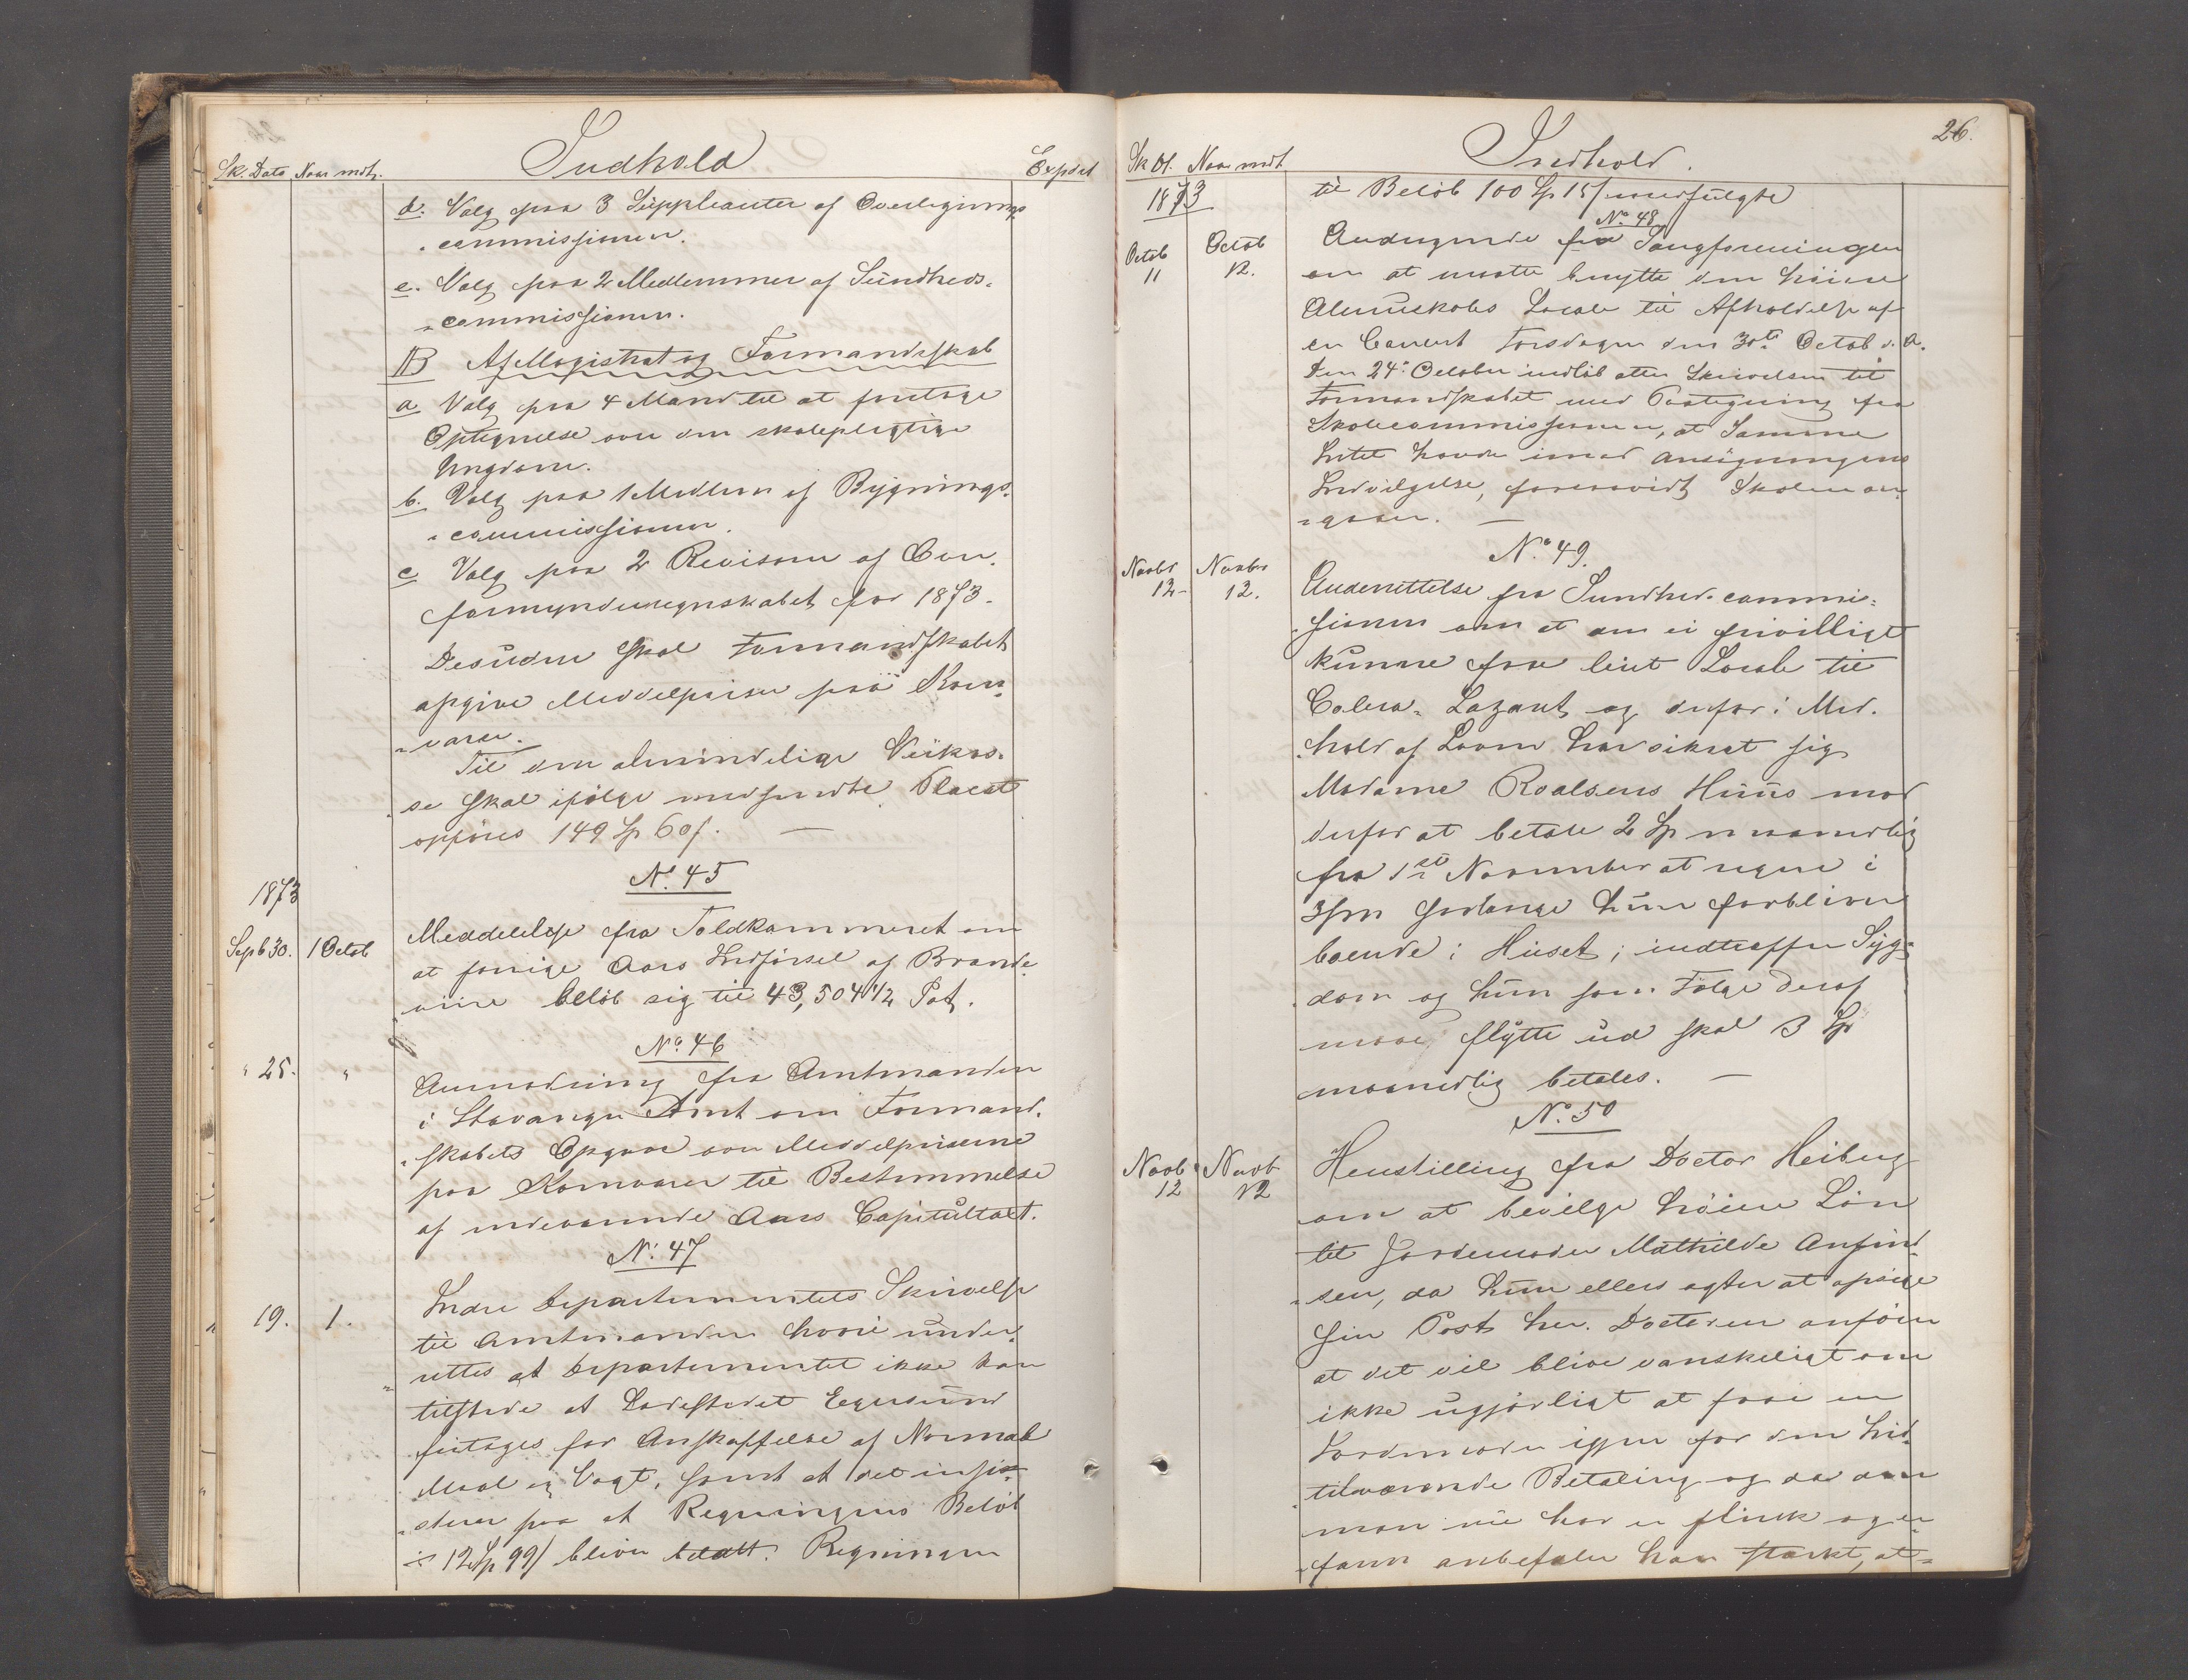 Sk. Dato Naar modt. Indhold Expdet
d. Valg paa 3 Suppleanter af Overlignings
commissionen.
e. Valg paa 2 Medlemmer af Sundheds-
commissionen.
B Af Magistrat og Formandskab
a Valg paa 4 Mænd til at foretage
Optegnelse over den skolepligtige
Ungdom.
b. Valg paa 1 Medlem af Bygnings-
commissionen.
c Valg paa 2 Revisorer af Over-
formynderregnskabet for 1873.
Desuden skal Formandskabet
opgive Middelpriser paa Korn-
varer.
Til den almindelige Veikas-
se skal ifølge medsendte Placat
opføres 149 Sp 60 s. —
No. 45
1873
Septb 30. 1 Octob Meddelelse fra Toldkammeret om
at forrige Aars Indførsel af Brænde-
viin beløb sig til 43,504 1/2 Pot.
No. 46
" 25. " Anmodning fra Amtmanden
i Stavanger Amt om Formand-
skabets Opgave over Middelpriserne
paa Kornvarer til Bestemmelse
af indeværende Aars Capitultaxt.
No. 47
19. 1. Indre Departementets Skrivelse
til Amtmanden hvori under-
rettes at Departementet ikke kan
tilstede at Ladestedet Egersund
fritages for Anskaffelse af Normal
Maal og Vægt, samt at det insi-
sterer paa at Regningens Beløb
÷ 12 Sp 99 s bliver betalt. Regningen
26.
Sk Dt. Naar modt Indhold.
1873 til Beløb 100 Sp 15 s medfulgte
No. 48
Octob 11 Octob 12. Andragende fra Sangforeningen
om at maatte benytte den høiere
Almueskoles Locale til Afholdelse af
en Concert Torsdagen den 30te Octob d. A.
Den 24de October indløb atter Skrivelsen til
Formandskabet med Paategning fra
Skolecommissionen, at Samme
Intet havde imod Ansøgningens
Indvilgelse, forsaavidt Skolen an-
gaaer. —
No. 49.
Novbr 12- Novbr 12. Underrettelse fra Sundhedscommi-
sionen om at den ei frivilligt
kunne faae leiet Locale til
Colera-Lazaret og derfor i Med-
hold af Loven har sikret sig
Madame Roalsens Huus mod
derfor at betale 2 Sp maanedlig
fra 1ste November at regne i
saalænge hun forbliver
boende i Huset; indtræffer Syg-
dom og hun som Følge deraf
maae flytte ud skal 3 Sp
maanedlig betales. —
No. 50
Novb 12 Novb 12 Henstilling fra Doctor Heiberg
om at bevilge høiere Løn
til Jordemoder Mathilde Anfind-
sen, da hun ellers agter at opsige
sin Post her. Doctoren anfører
at det vil blive vanskeligt om
ikke ugjørligt at faae en
Jordemoder igjen for den hid-
tilværende Betaling og da den
man nu har er flink og er-
faren anbefaler han stærkt, at